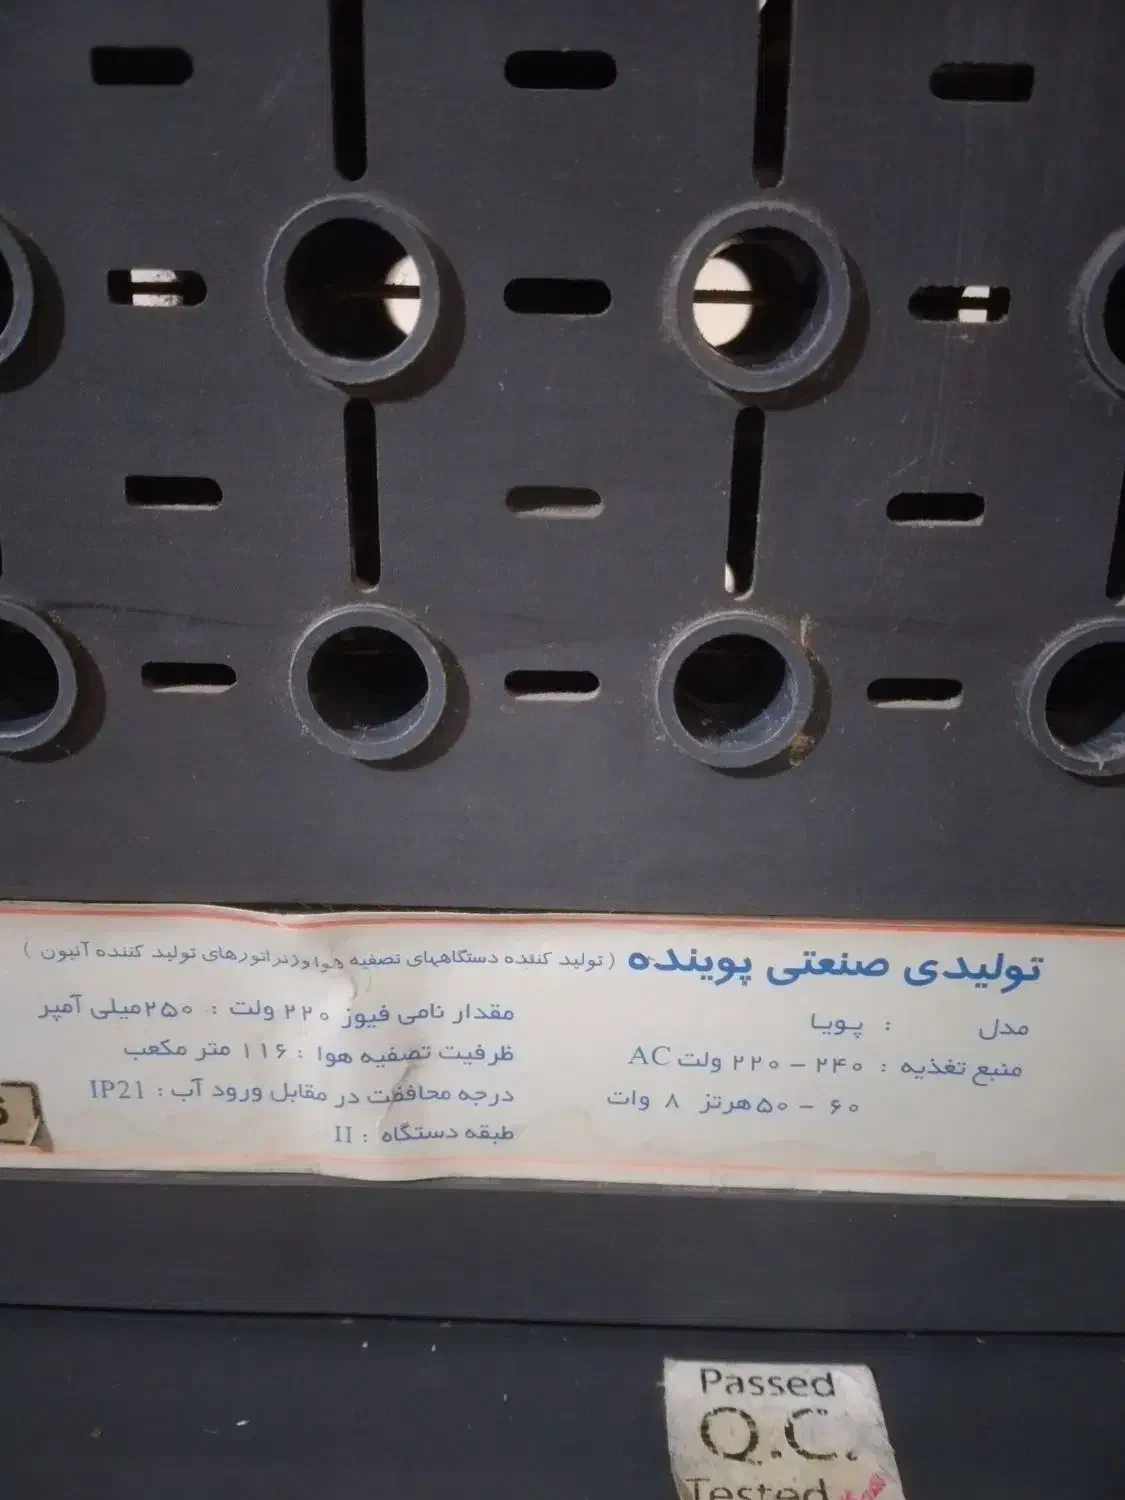 تولیدی صنعتی پوینده ( تولید کننده دستگاههای تصفیه هوا و ژنراتورهای تولید کننده آنیون )
مدل : پویا
منبع تغذیه : ۲۴۰ – ۲۲۰ ولت AC
۶۰ – ۵۰ هرتز ۸ وات
مقدار نامی فیوز ۲۲۰ ولت : ۲۵۰ میلی آمپر
ظرفیت تصفیه هوا : ۱۱۶ متر مکعب
درجه محافظت در مقابل ورود آب : IP21
طبقه دستگاه : II
Passed
Q.C.
Tested